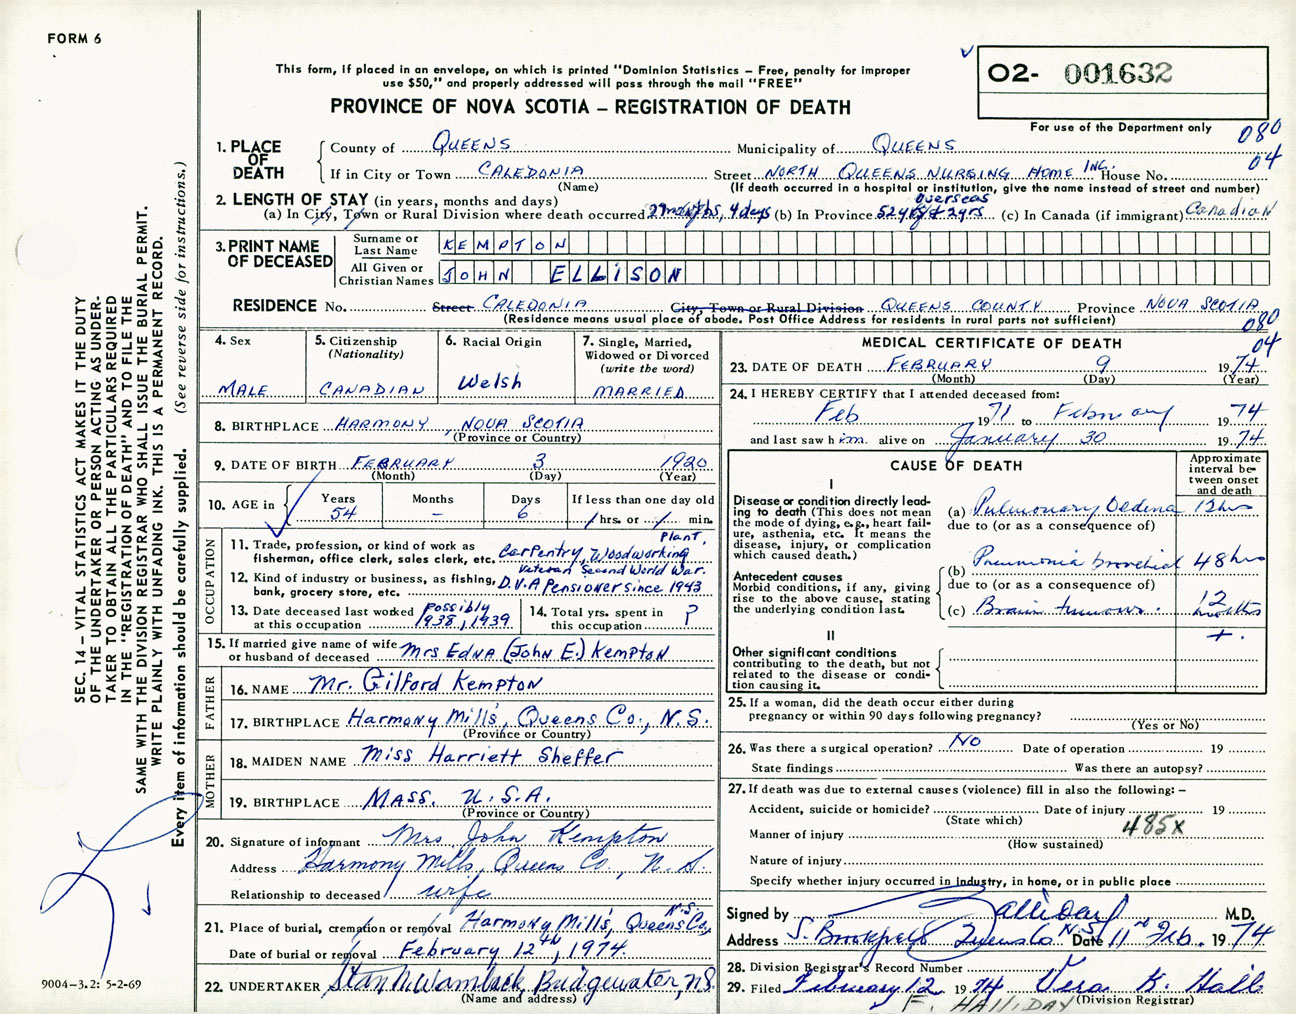 FORM 6
This form, if placed in an envelope, on which is printed "Dominion Statistics – Free, penalty for improper
use $50," and properly addressed will pass through the mail "FREE"
PROVINCE OF NOVA SCOTIA – REGISTRATION OF DEATH
02- 001632
For use of the Department only
080
04
1. PLACE OF DEATH
County of QUEENS Municipality of QUEENS
If in City or Town CALEDONIA Street NORTH QUEENS NURSING HOME INC. House No.
(Name) (If death occurred in a hospital or institution, give the name instead of street and number)
2. LENGTH OF STAY (in years, months and days)
overseas
(a) In City, Town or Rural Division where death occurred 27 months, 4 days (b) In Province 52 yrs & 2 yrs (c) In Canada (if immigrant) Canadian
3. PRINT NAME OF DECEASED
Surname or Last Name KEMPTON
All Given or Christian Names JOHN ELLISON
RESIDENCE No. Street CALEDONIA City, Town or Rural Division QUEENS COUNTY Province NOVA SCOTIA
(Residence means usual place of abode. Post Office Address for residents in rural parts not sufficient)
080
04
4. Sex MALE
5. Citizenship (Nationality) CANADIAN
6. Racial Origin Welsh
7. Single, Married, Widowed or Divorced (write the word) MARRIED
8. BIRTHPLACE HARMONY, NOVA SCOTIA
(Province or Country)
9. DATE OF BIRTH FEBRUARY 3 1920
(Month) (Day) (Year)
10. AGE in Years Months Days If less than one day old
54 – 6 / hrs. or / min.
OCCUPATION
11. Trade, profession, or kind of work as
fisherman, office clerk, sales clerk, etc. Carpentry, Woodworking Plant,
12. Kind of industry or business, as fishing,
bank, grocery store, etc. Veteran Second World War.
D.V.A Pensioner since 1943
13. Date deceased last worked
at this occupation possibly 1938, 1939
14. Total yrs. spent in
this occupation ?
15. If married give name of wife
or husband of deceased Mrs Edna (John E.) Kempton
FATHER
16. NAME Mr. Gilford Kempton
17. BIRTHPLACE Harmony Mill's, Queens Co., N.S.
(Province or Country)
MOTHER
18. MAIDEN NAME Miss Harriett Sheffer
19. BIRTHPLACE MASS. U.S.A.
(Province or Country)
20. Signature of informant Mrs John Kempton
Address Harmony Mills, Queens Co., N.S.
Relationship to deceased wife
21. Place of burial, cremation or removal Harmony Mill's, Queens Co., N.S.
Date of burial or removal February 12th, 1974.
22. UNDERTAKER Bridgewater, N.S.
(Name and address)
MEDICAL CERTIFICATE OF DEATH
23. DATE OF DEATH FEBRUARY 9 1974
(Month) (Day) (Year)
24. I HEREBY CERTIFY that I attended deceased from:
Feb 1971 to February 1974
and last saw him alive on January 30 1974
CAUSE OF DEATH
Approximate interval between onset and death
I
Disease or condition directly leading to death (This does not mean the mode of dying, e.g., heart failure, asthenia, etc. It means the disease, injury, or complication which caused death.)
(a) Pulmonary Oedema 12 hrs
due to (or as a consequence of)
Antecedent causes
Morbid conditions, if any, giving rise to the above cause, stating the underlying condition last.
(b) Pneumonia bronchial 48 hrs
due to (or as a consequence of)
(c) Brain tumour. 12 months +.
II
Other significant conditions
contributing to the death, but not related to the disease or condition causing it.
25. If a woman, did the death occur either during
pregnancy or within 90 days following pregnancy?
(Yes or No)
26. Was there a surgical operation? No Date of operation 19
State findings Was there an autopsy?
27. If death was due to external causes (violence) fill in also the following: –
Accident, suicide or homicide? Date of injury 19
(State which)
485X
Manner of injury
(How sustained)
Nature of injury
Specify whether injury occurred in industry, in home, or in public place
Signed by M.D.
Address S. Brookfield Queens Co N.S. Date 11th Feb. 1974
28. Division Registrar's Record Number
29. Filed February 12 1974 Vera K. Hall
F. HALLIDAY (Division Registrar)
SEC. 14 – VITAL STATISTICS ACT MAKES IT THE DUTY
OF THE UNDERTAKER OR PERSON ACTING AS UNDER-
TAKER TO OBTAIN ALL THE PARTICULARS REQUIRED
IN THE "REGISTRATION OF DEATH" AND TO FILE THE
SAME WITH THE DIVISION REGISTRAR WHO SHALL ISSUE THE BURIAL PERMIT.
WRITE PLAINLY WITH UNFADING INK. THIS IS A PERMANENT RECORD.
Every item of information should be carefully supplied. (See reverse side for instructions.)
9004–3.2: 5-2-69